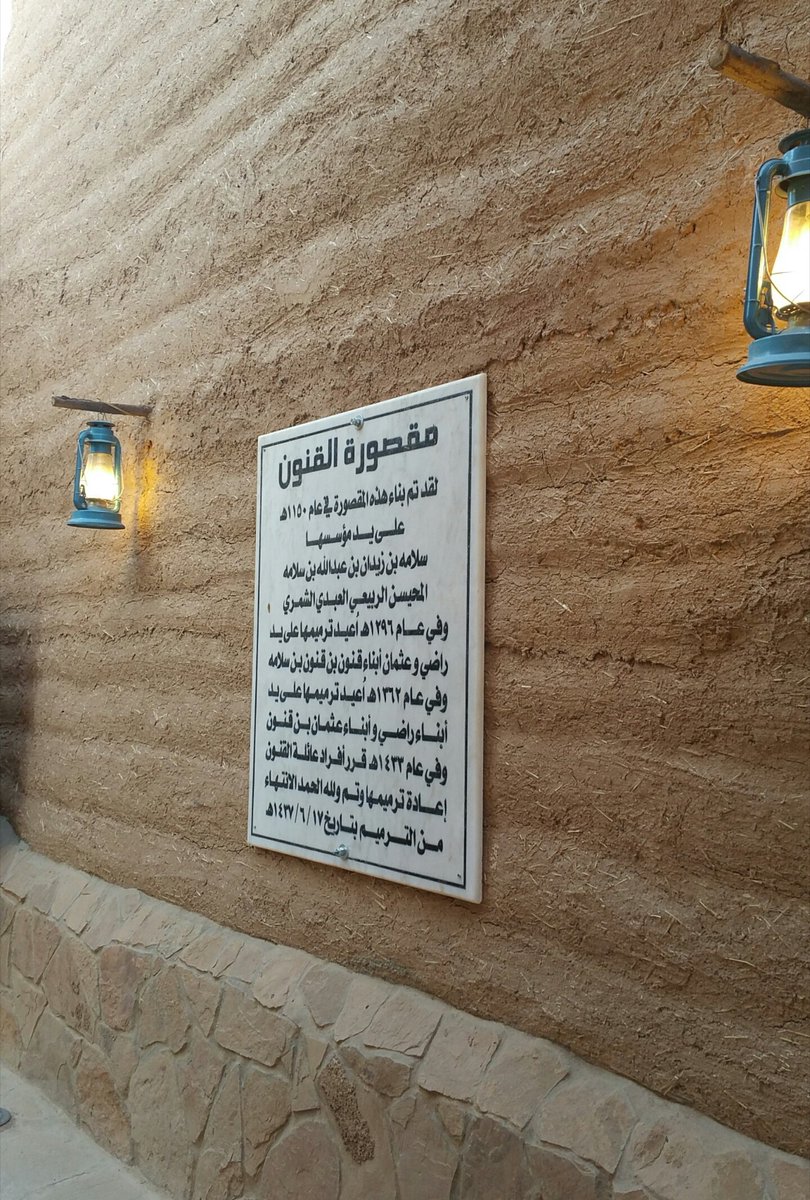 مقصورة القنون
لقد تم بناء هذه المقصورة في عام ١١٥٠هـ
على يد مؤسسها
سلامه بن زيدان بن عبدالله بن سلامه
المحيسن الربيعي العبدي الشمري
وفي عام ١٢٩٦هـ أعيد ترميمها على يد
راضي و عثمان أبناء قنون بن قنون بن سلامه
وفي عام ١٣٦٢هـ أعيد ترميمها على يد
أبناء راضي و أبناء عثمان بن قنون
وفي عام ١٤٣٣هـ قرر أفراد عائلة القنون
إعادة ترميمها وتم ولله الحمد الانتهاء
من الترميم بتاريخ ١٤٣٧/٦/١٧هـ